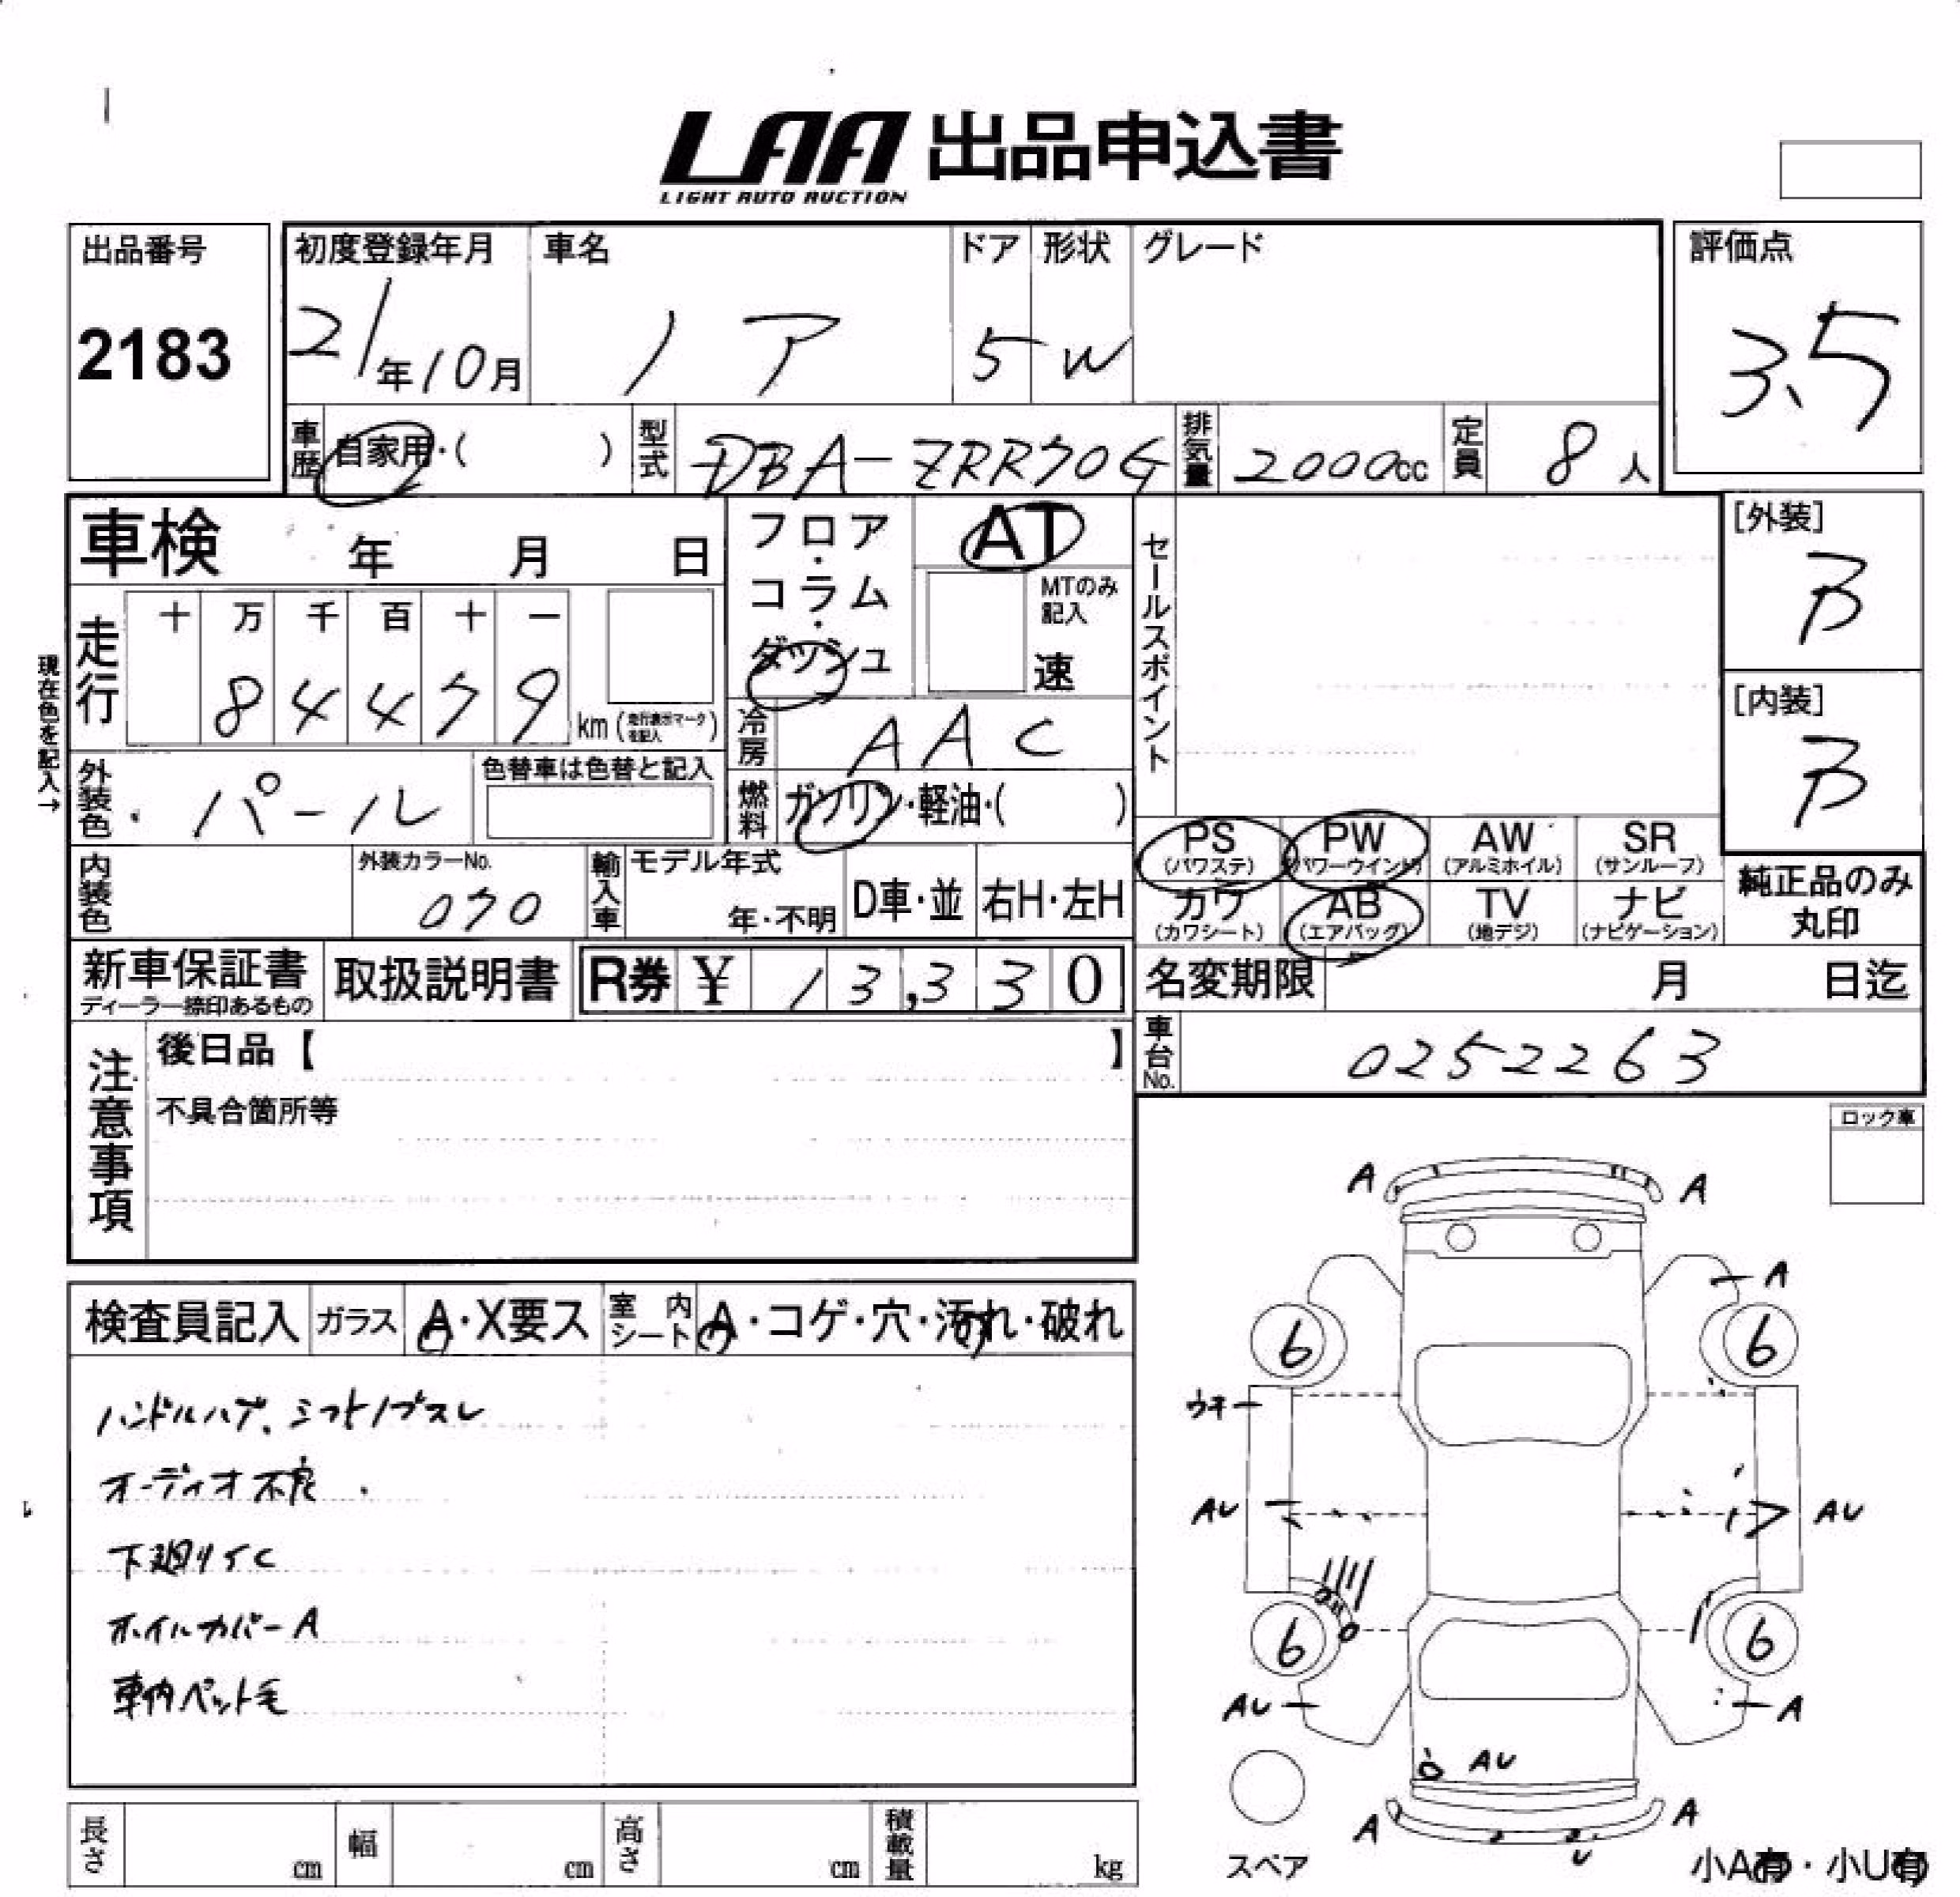 LAA 出品申込書
LIGHT AUTO AUCTION
出品番号
2183
初度登録年月
21年10月
車名
ノア
ドア
5
形状
W
グレード
評価点
3.5
車歴
自家用・( )
型式
DBA-ZRR70G
排気量
2000cc
定員
8人
車検 年 月 日
フロア・コラム・ダッシュ
AT
MTのみ記入
速
セールスポイント
[外装]
B
[内装]
B
現在色を記入→
走行
十 万 千 百 十 一
8 4 4 7 9
km (走行表示マークを記入)
冷房
AAC
外装色
パール
色替車は色替と記入
燃料
ガソリン・軽油・( )
PS
(パワステ)
PW
(パワーウインド)
AW
(アルミホイル)
SR
(サンルーフ)
内装色
外装カラーNo.
070
輸入車
モデル年式
年・不明
D車・並
右H・左H
カワ
(カワシート)
AB
(エアバッグ)
TV
(地デジ)
ナビ
(ナビゲーション)
純正品のみ
丸印
新車保証書
ディーラー捺印あるもの
取扱説明書
R券 ¥ 13,330
名変期限 月 日迄
車台No.
0252263
注意事項
後日品【 】
不具合箇所等
ロック車
検査員記入
ガラス
A・X要ス
室内シート
A・コゲ・穴・汚れ・破れ
ハンドルハゲ、シフトノブスレ
オーディオ不良
下廻りサビC
ホイルカバーA
車内ペット毛
A
A
A
6
6
ウキ
AU
AU
6
6
AU
A
AU
A
A
U
スペア
小A有・小U有
長さ cm
幅 cm
高さ cm
積載量 kg